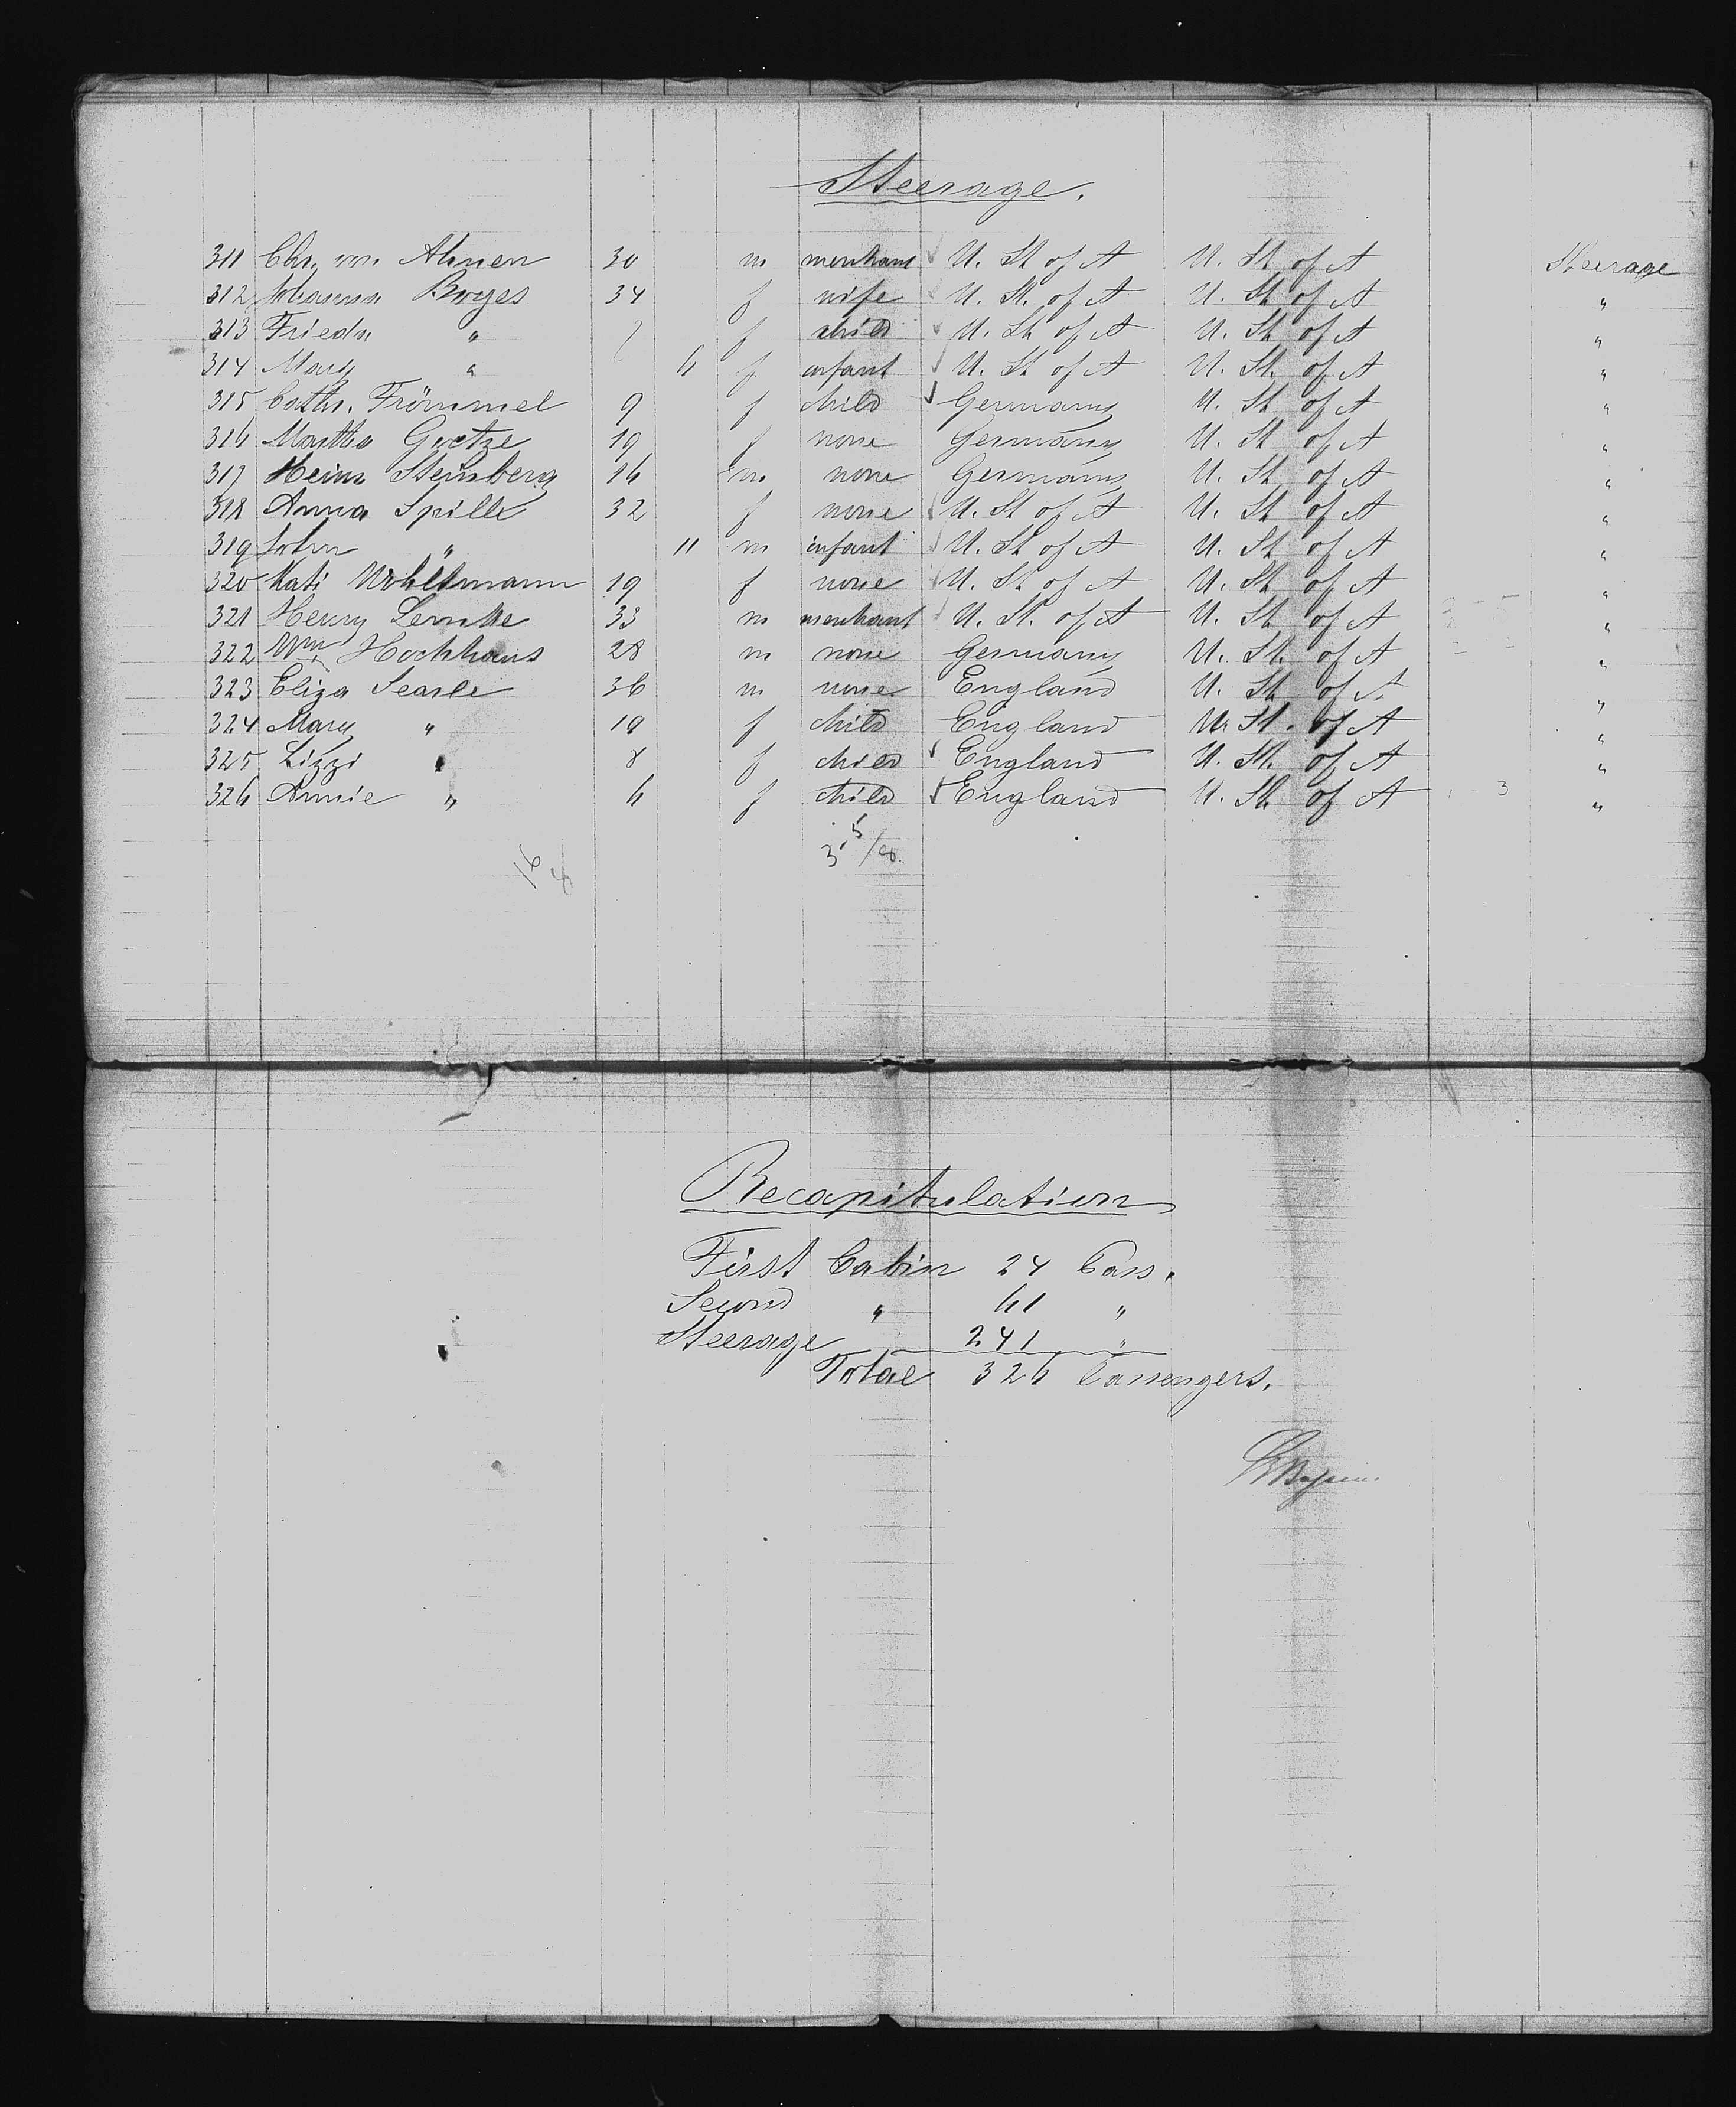 Steerage.
311 Chr. von Ahnen 30 m merchant U. St of A U. St of A Steerage
312 Johanna Borges 34 f wife U. St. of A U. St of A "
313 Frieda " f child U. St of A U. St of A "
314 Mary " 6 f infant U. St of A U. St. of A "
315 Cathr. Frömmel 9 f child Germany U. St of A "
316 Martha Goetze 19 f none Germany U. St of A "
317 Heinr Steinberg 16 m none Germany U. St of A "
318 Anna Spille 32 f none U. St of A U. St of A "
319 John " 11 m infant U. St of A U. St of A "
320 Kati Wohltmann 19 f none U. St of A U. St of A "
321 Henry Lemke 33 m merchant U. St. of A U. St of A "
322 Wm. Hochhaus 28 m none Germany U. St. of A "
323 Eliza Searle 36 m none England U. St of A "
324 Mary " 10 f child England U. St. of A "
325 Lizzi " 8 f child England U. St. of A "
326 Annie " 6 f child England U. St. of A 3 "
5
3 /8.
16
8
Recapitulation
First Cabin 24 Pass.
Second " 61 "
Steerage 241 "
Total 326 Passengers.